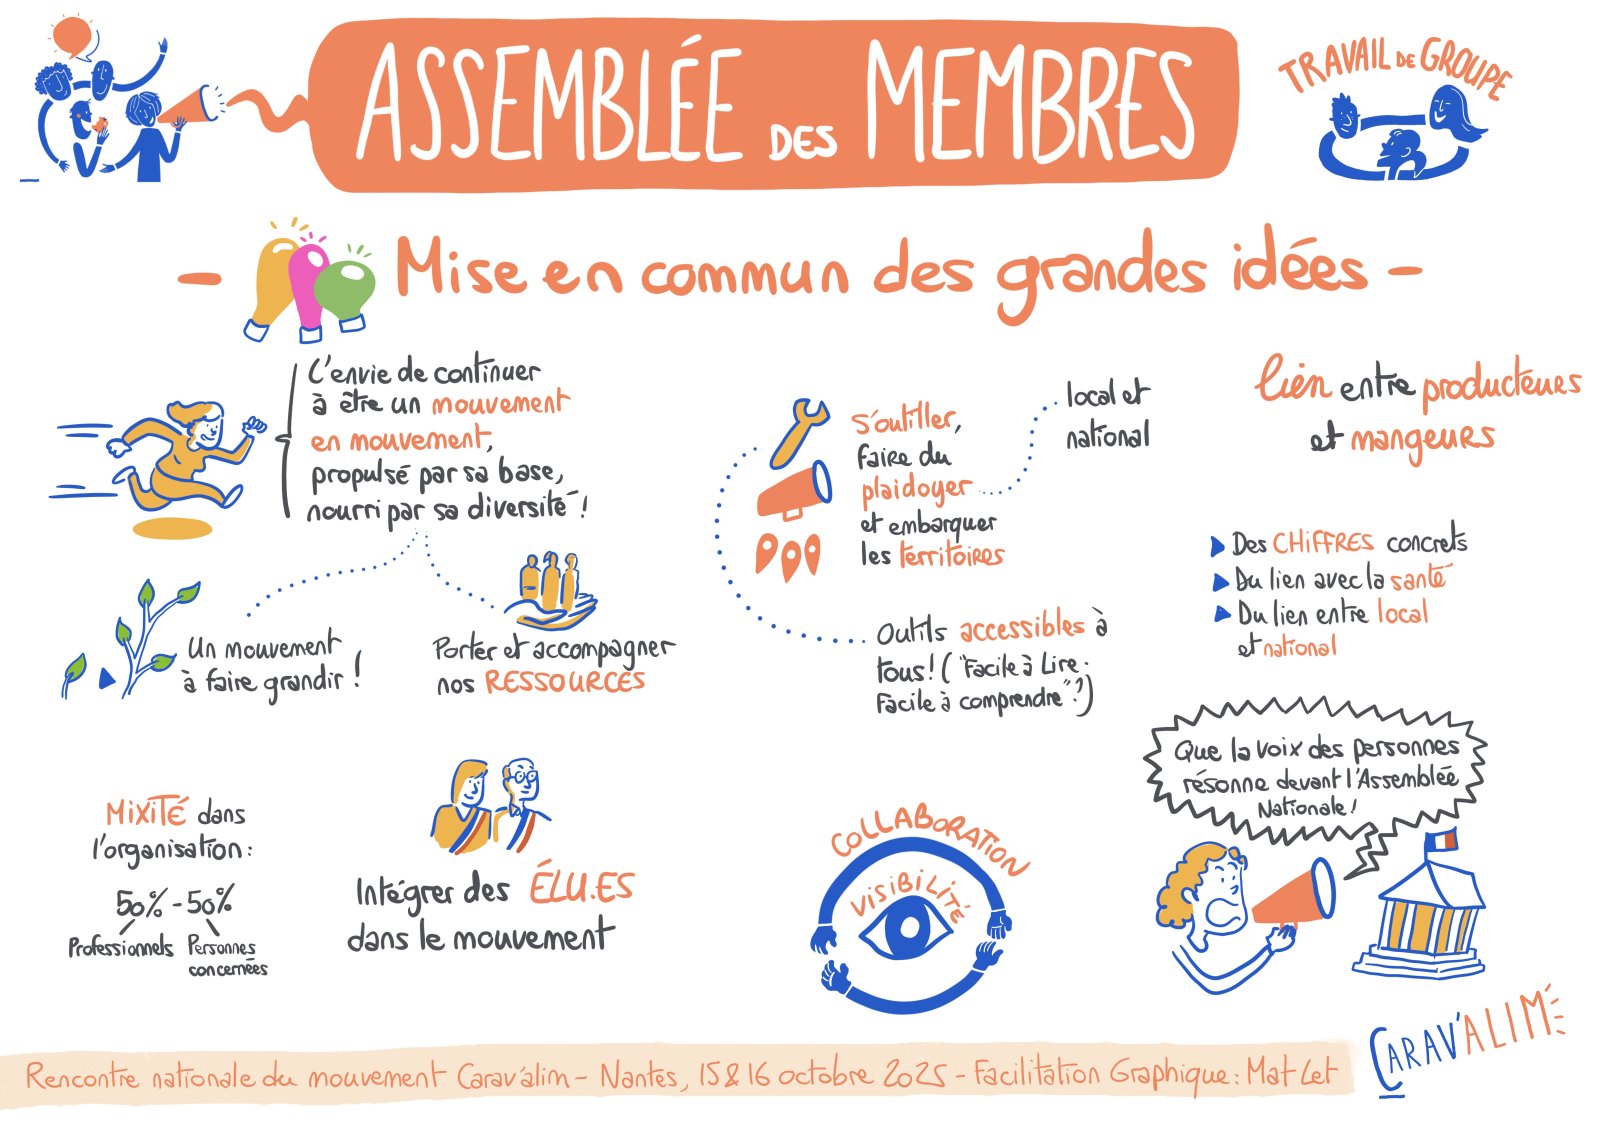 ASSEMBLÉE DES MEMBRES
TRAVAIL DE GROUPE
- Mise en commun des grandes idées -
L'envie de continuer
à être un mouvement
en mouvement,
propulsé par sa base,
nourri par sa diversité !
Un mouvement
à faire grandir !
Porter et accompagner
nos RESSOURCES
MIXITÉ dans
l'organisation :
50% - 50%
Professionnels
Personnes
concernées
Intégrer des ÉLU.ES
dans le mouvement
S'outiller,
faire du
plaidoyer
et embarquer
les territoires
local et
national
Outils accessibles à
tous ! ( "Facile à Lire.
Facile à comprendre" ?)
COLLABORATION
VISIBILITÉ
lien entre producteurs
et mangeurs
Des CHIFFRES concrets
Du lien avec la santé
Du lien entre local
et national
Que la voix des personnes
résonne devant l'Assemblée
Nationale !
Rencontre nationale du mouvement Carav'alim - Nantes, 15 & 16 octobre 2025 - Facilitation Graphique : Mat Let
CARAV'ALIM